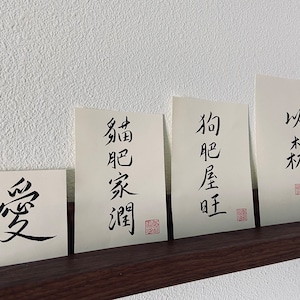 愛
貓肥家潤
狗肥屋旺